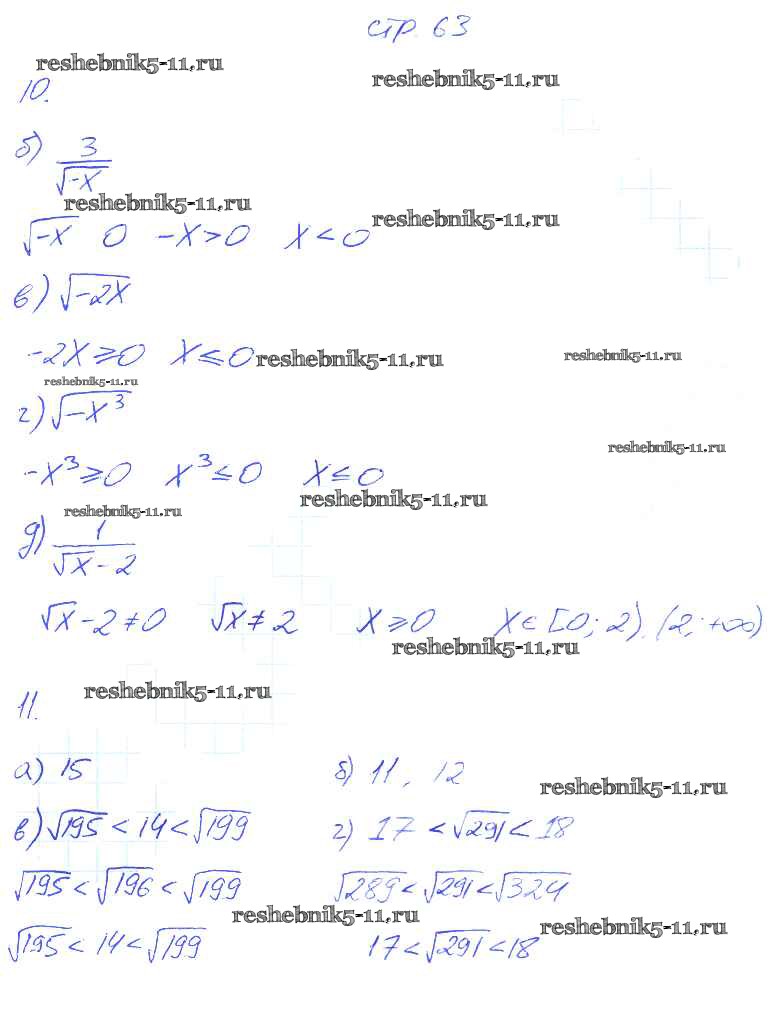 стр. 63
reshebnik5-11.ru
reshebnik5-11.ru
10.
б) 3/√-x
reshebnik5-11.ru
reshebnik5-11.ru
√-x 0 -x>0 x<0
в) √-2x
-2x⩾0 x⩽0
reshebnik5-11.ru
reshebnik5-11.ru
reshebnik5-11.ru
г) √-x³
reshebnik5-11.ru
-x³⩾0 x³⩽0 x⩽0
reshebnik5-11.ru
reshebnik5-11.ru
д) 1/√x-2
√x-2≠0 √x≠2 x⩾0 x∈[0; 2) (2; +∞)
reshebnik5-11.ru
reshebnik5-11.ru
11.
а) 15 б) 11, 12
reshebnik5-11.ru
в) √195 < 14 < √199 г) 17 < √291 < 18
√195 < √196 < √199 √289 < √291 < √324
reshebnik5-11.ru
reshebnik5-11.ru
√195 < 14 < √199 17 < √291 < 18